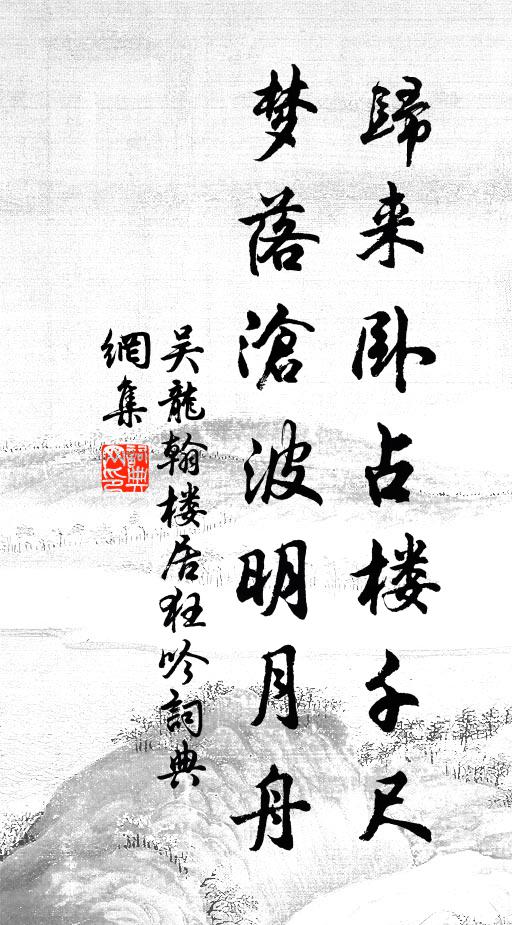 歸来卧占楼千尺
梦落滄波明月舟
吴龍翰楼居狂吟詞典
網集
詞典
网印